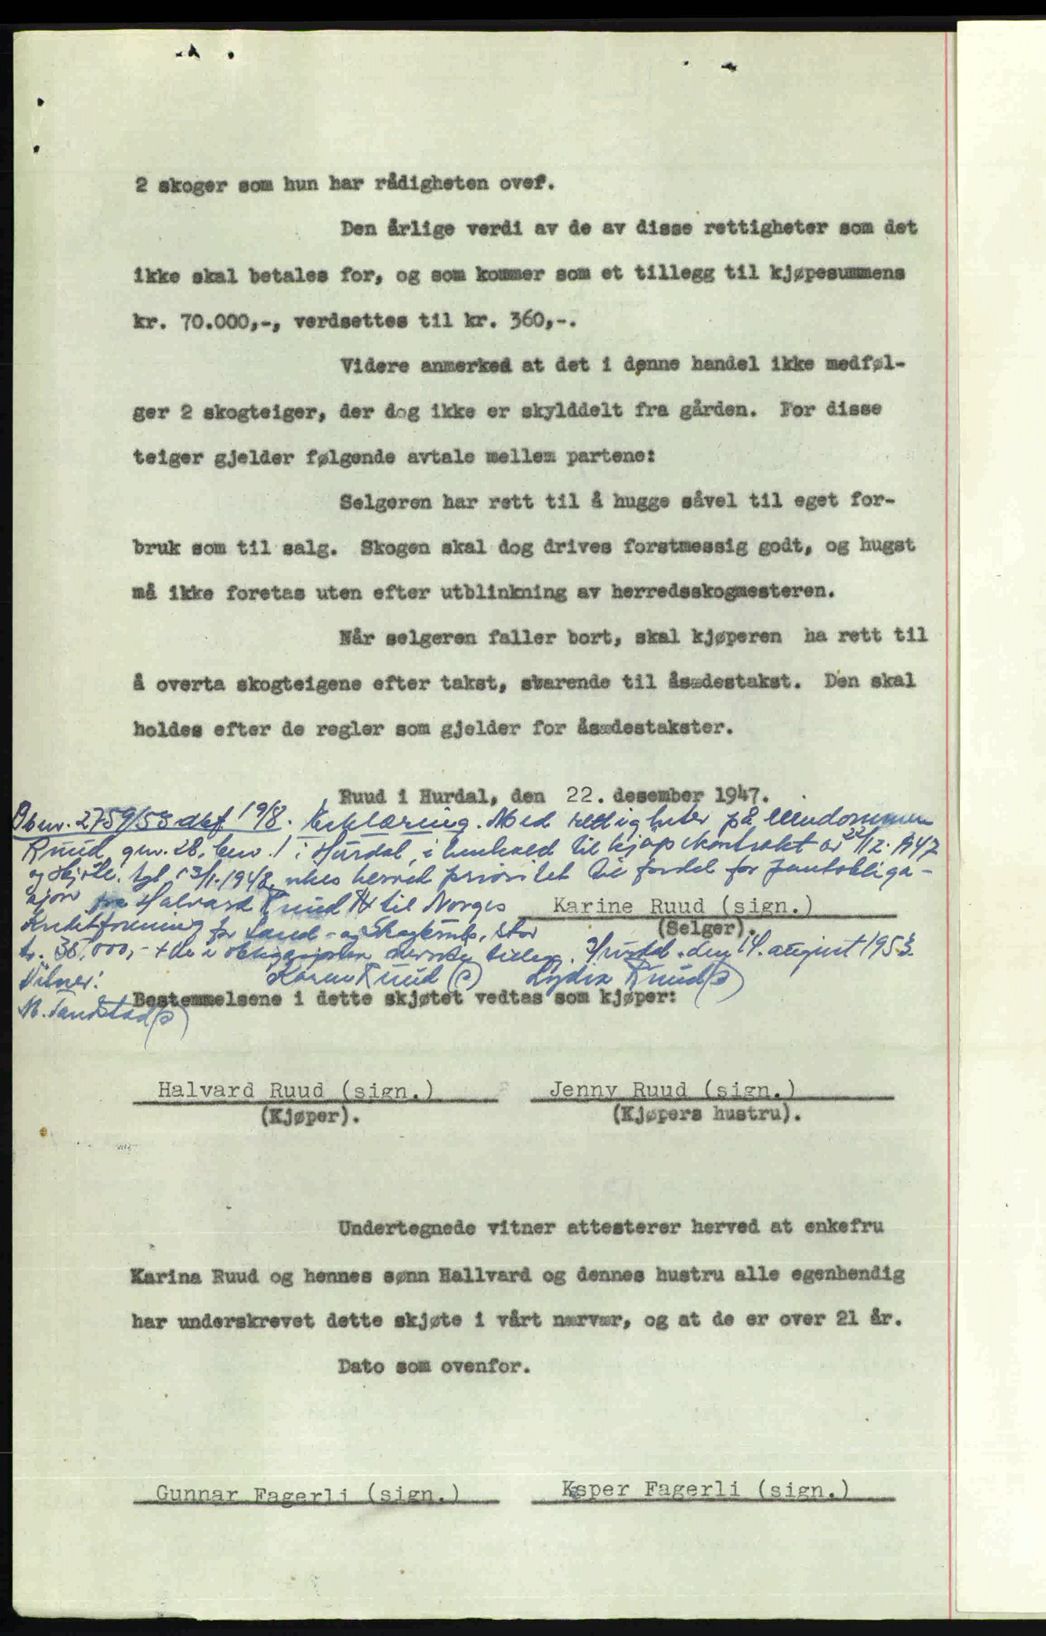 2 skoger som hun har rådigheten over.
Den årlige verdi av de av disse rettigheter som det
ikke skal betales for, og som kommer som et tillegg til kjøpesummens
kr. 70.000,-, verdsettes til kr. 360,-.
Videre anmerked at det i denne handel ikke medføl-
ger 2 skogteiger, der dog ikke er skylddelt fra gården. For disse
teiger gjelder følgende avtale mellem partene:
Selgeren har rett til å hugge såvel til eget for-
bruk som til salg. Skogen skal dog drives forstmessig godt, og hugst
må ikke foretas uten efter utblinkning av herredsskogmesteren.
Når selgeren faller bort, skal kjøperen ha rett til
å overta skogteigene efter takst, svarende til åsædestakst. Den skal
holdes efter de regler som gjelder for åsædestakster.
Ruud i Hurdal, den 22. desember 1947.
Dbnr. 2759/53 dbf 19/8. Erklæring. Med rettigheter på eiendommen
Ruud, gnr. 28, bnr. 1 i Hurdal, i henhold til kjøpekontrakt av 22/12-1947
og skjøte, tgl. 1948, vikes herved prioritet til fordel for pantobliga-
sjon fra Halvard Ruud til Norges
Karine Ruud (sign.)
(Selger).
Kredittforening for Land- og Skogbruk, stor
kr. 36,000,- + de i obligasjonen nevnte tillegg. Hurdal, den 14. august 1953
Vitner: Karen Ruud (s) Lydia Ruud (s)
M. Tandstad (s)
Bestemmelsene i dette skjøtet vedtas som kjøper:
Halvard Ruud (sign.) Jenny Ruud (sign.)
(Kjøper). (Kjøpers hustru).
Undertegnede vitner attesterer herved at enkefru
Karina Ruud og hennes sønn Hallvard og dennes hustru alle egenhendig
har underskrevet dette skjøte i vårt nærvær, og at de er over 21 år.
Dato som ovenfor.
Gunnar Fagerli (sign.) Kasper Fagerli (sign.)